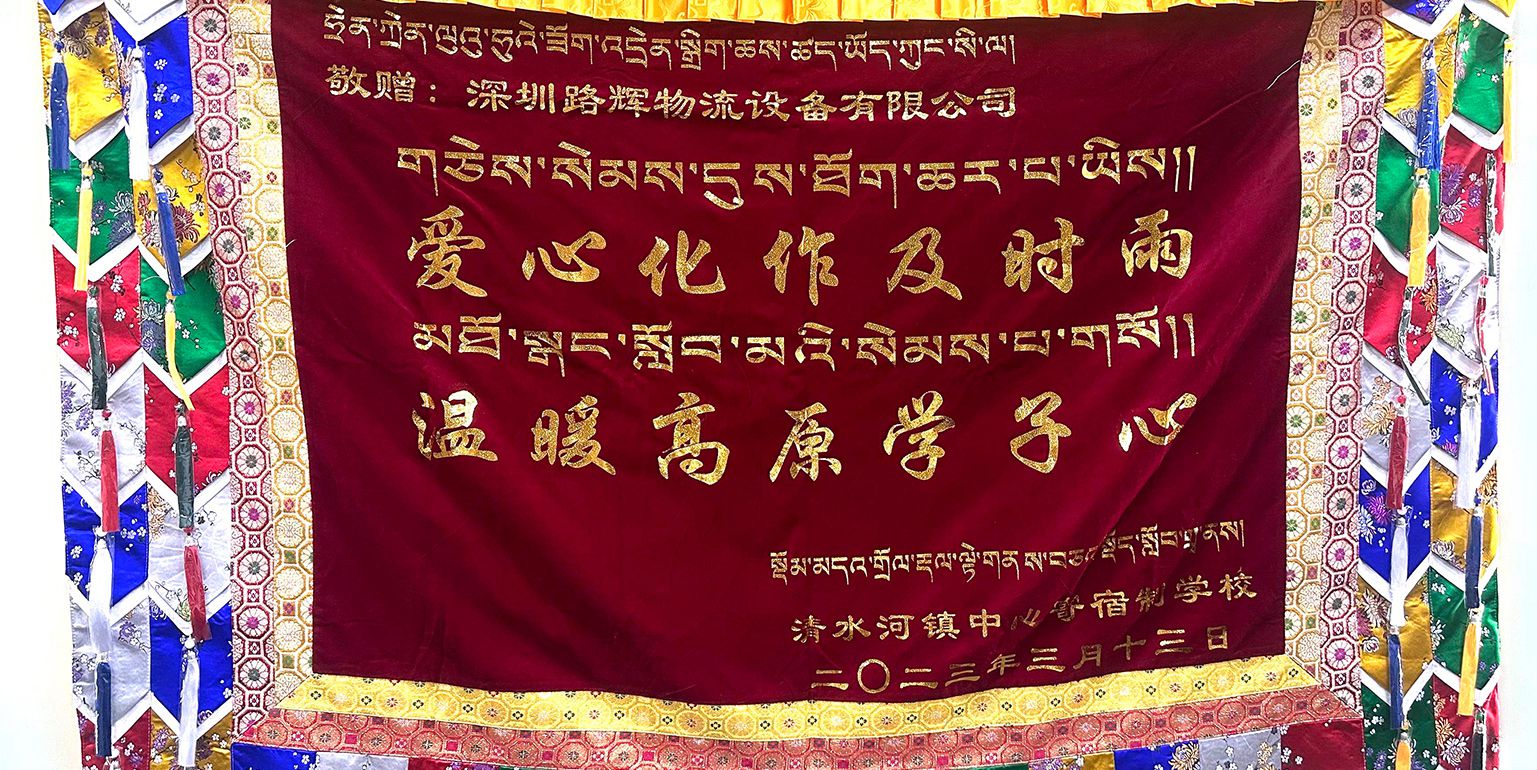 ཧྲེན་ཀྲེན་ལུའུ་ཧུའེ་ཟོག་འདྲེན་སྒྲིག་ཆས་ཚད་ཡོད་ཀུང་སི་ལ།
敬赠：深圳路辉物流设备有限公司
གཅེས་སེམས་དུས་ཐོག་ཆར་པ་ཡིས།།
爱心化作及时雨
མཐོ་སྒང་སློབ་མའི་སེམས་པ་གསོ།།
温暖高原学子心
སྡོད་སློབ་གྲྭ་ནས།
清水河镇中心寄宿制学校
二〇二三年三月十三日